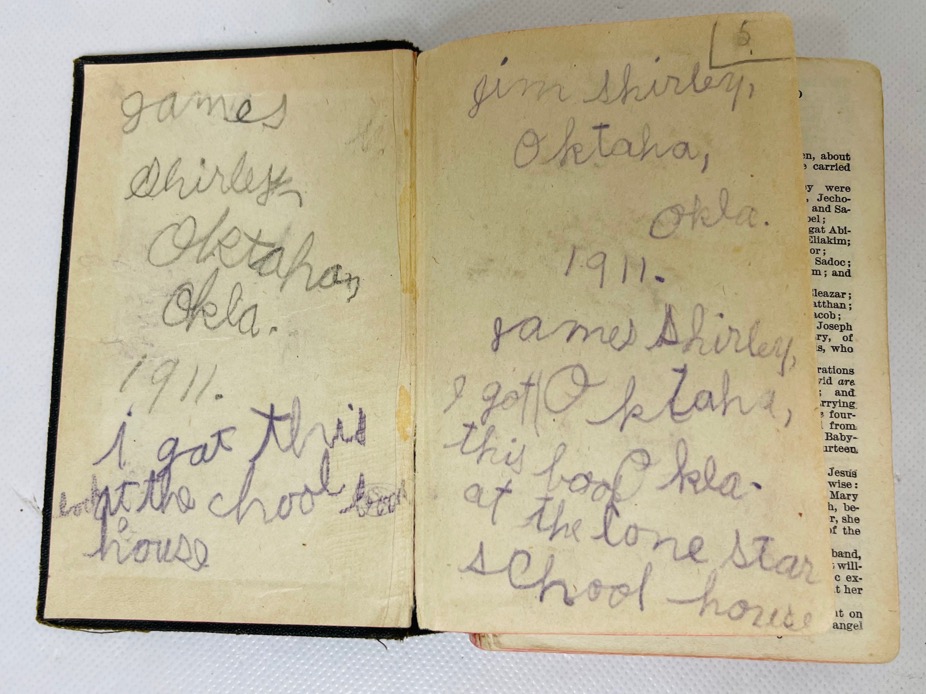 james
Shirley,
Oktaha,
Okla.
1911.
i got this
book
at the chool
house
5.
jim shirley,
Oktaha,
Okla.
1911.
james Shirley,
I got Oktaha,
this book Okla.
at the lone star
school house
en, about
carried
were
, Jecho-
and Sa-
gat Abi-
Eliakim;
or;
Sadoc;
m; and
leazar;
atthan;
acob;
Joseph
ry, of
s, who
rations
vid are
; and
rrying
four-
from
Baby-
urteen
Jesus
wise:
Mary
h, be-
r, she
of the
band,
will-
c ex-
t her
t on
angel